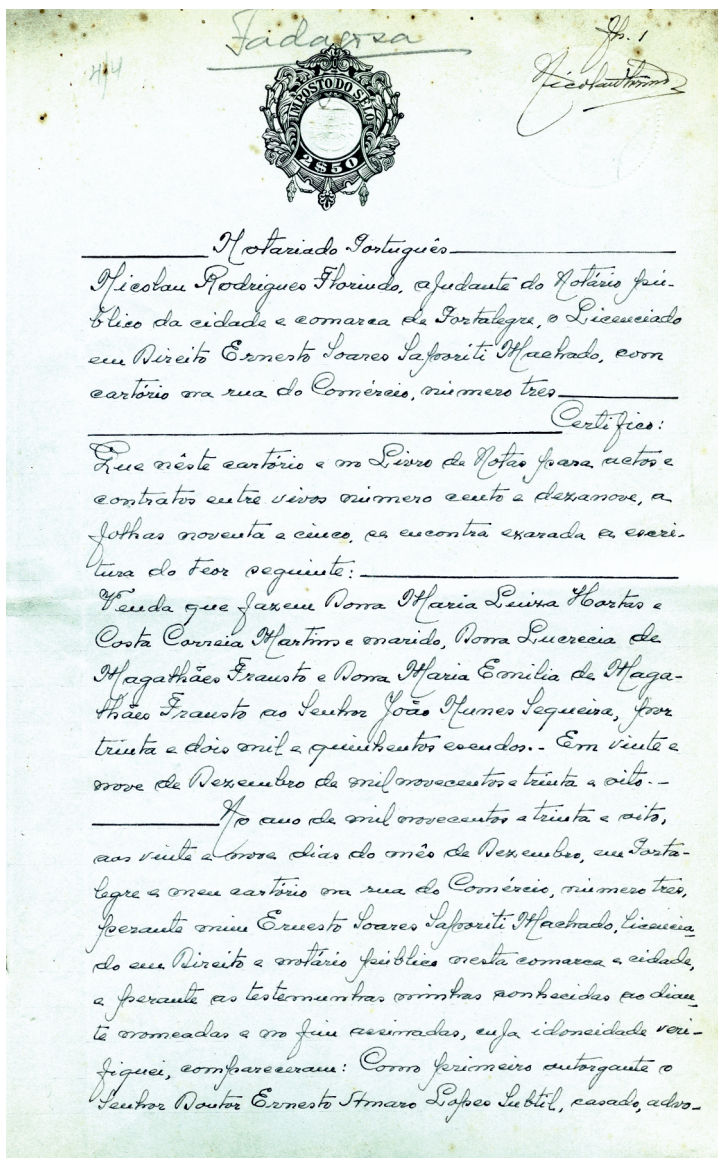 Fadagosa
4/4
fh. 1
Nicolau Florindo
IMPOSTO DO SELO
2$50
Notariado Português
Nicolau Rodrigues Florindo, ajudante do Notário pú-
blico da cidade e comarca de Portalegre, o Licenciado
em Direito Ernesto Soares Safooriti Machado, com
cartório na rua do Comércio, número tres
Certifico:
Que nêste cartório e no Livro de Notas para actos e
contratos entre vivos número cento e dezanove, a
folhas noventa e cinco, se encontra exarada a escri-
tura do teor seguinte:
Venda que fazem Dona Maria Luiza Hortas e
Costa Correia Martins e marido, Dona Lucrecia de
Magalhães Frausto e Dona Maria Emilia de Maga-
lhães Frausto ao Senhor João Nunes Sequeira, por
trinta e dois mil e quinhentos escudos.- Em vinte e
nove de Dezembro de mil novecentos e trinta e oito.-
No ano de mil novecentos e trinta e oito,
aos vinte e nove dias do mês de Dezembro, em Porta-
legre e meu cartório na rua do Comércio, número tres,
perante mim Ernesto Soares Safooriti Machado, licencia-
do em Direito e notário público nesta comarca e cidade,
e perante as testemunhas minhas conhecidas ao dian-
te nomeadas e no fim assinadas, cuja idoneidade veri-
fiquei, compareceram: Como primeiro outorgante o
Senhor Doutor Ernesto Amaro Lopes Subtil, casado, advo-